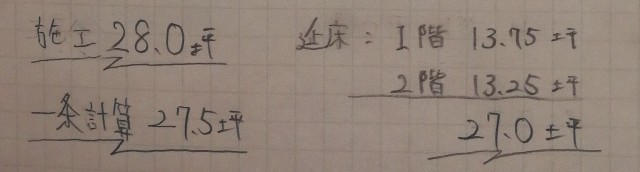 施工 28.0坪
一条計算 27.5坪
延床：1階 13.75坪
2階 13.25坪
27.0坪